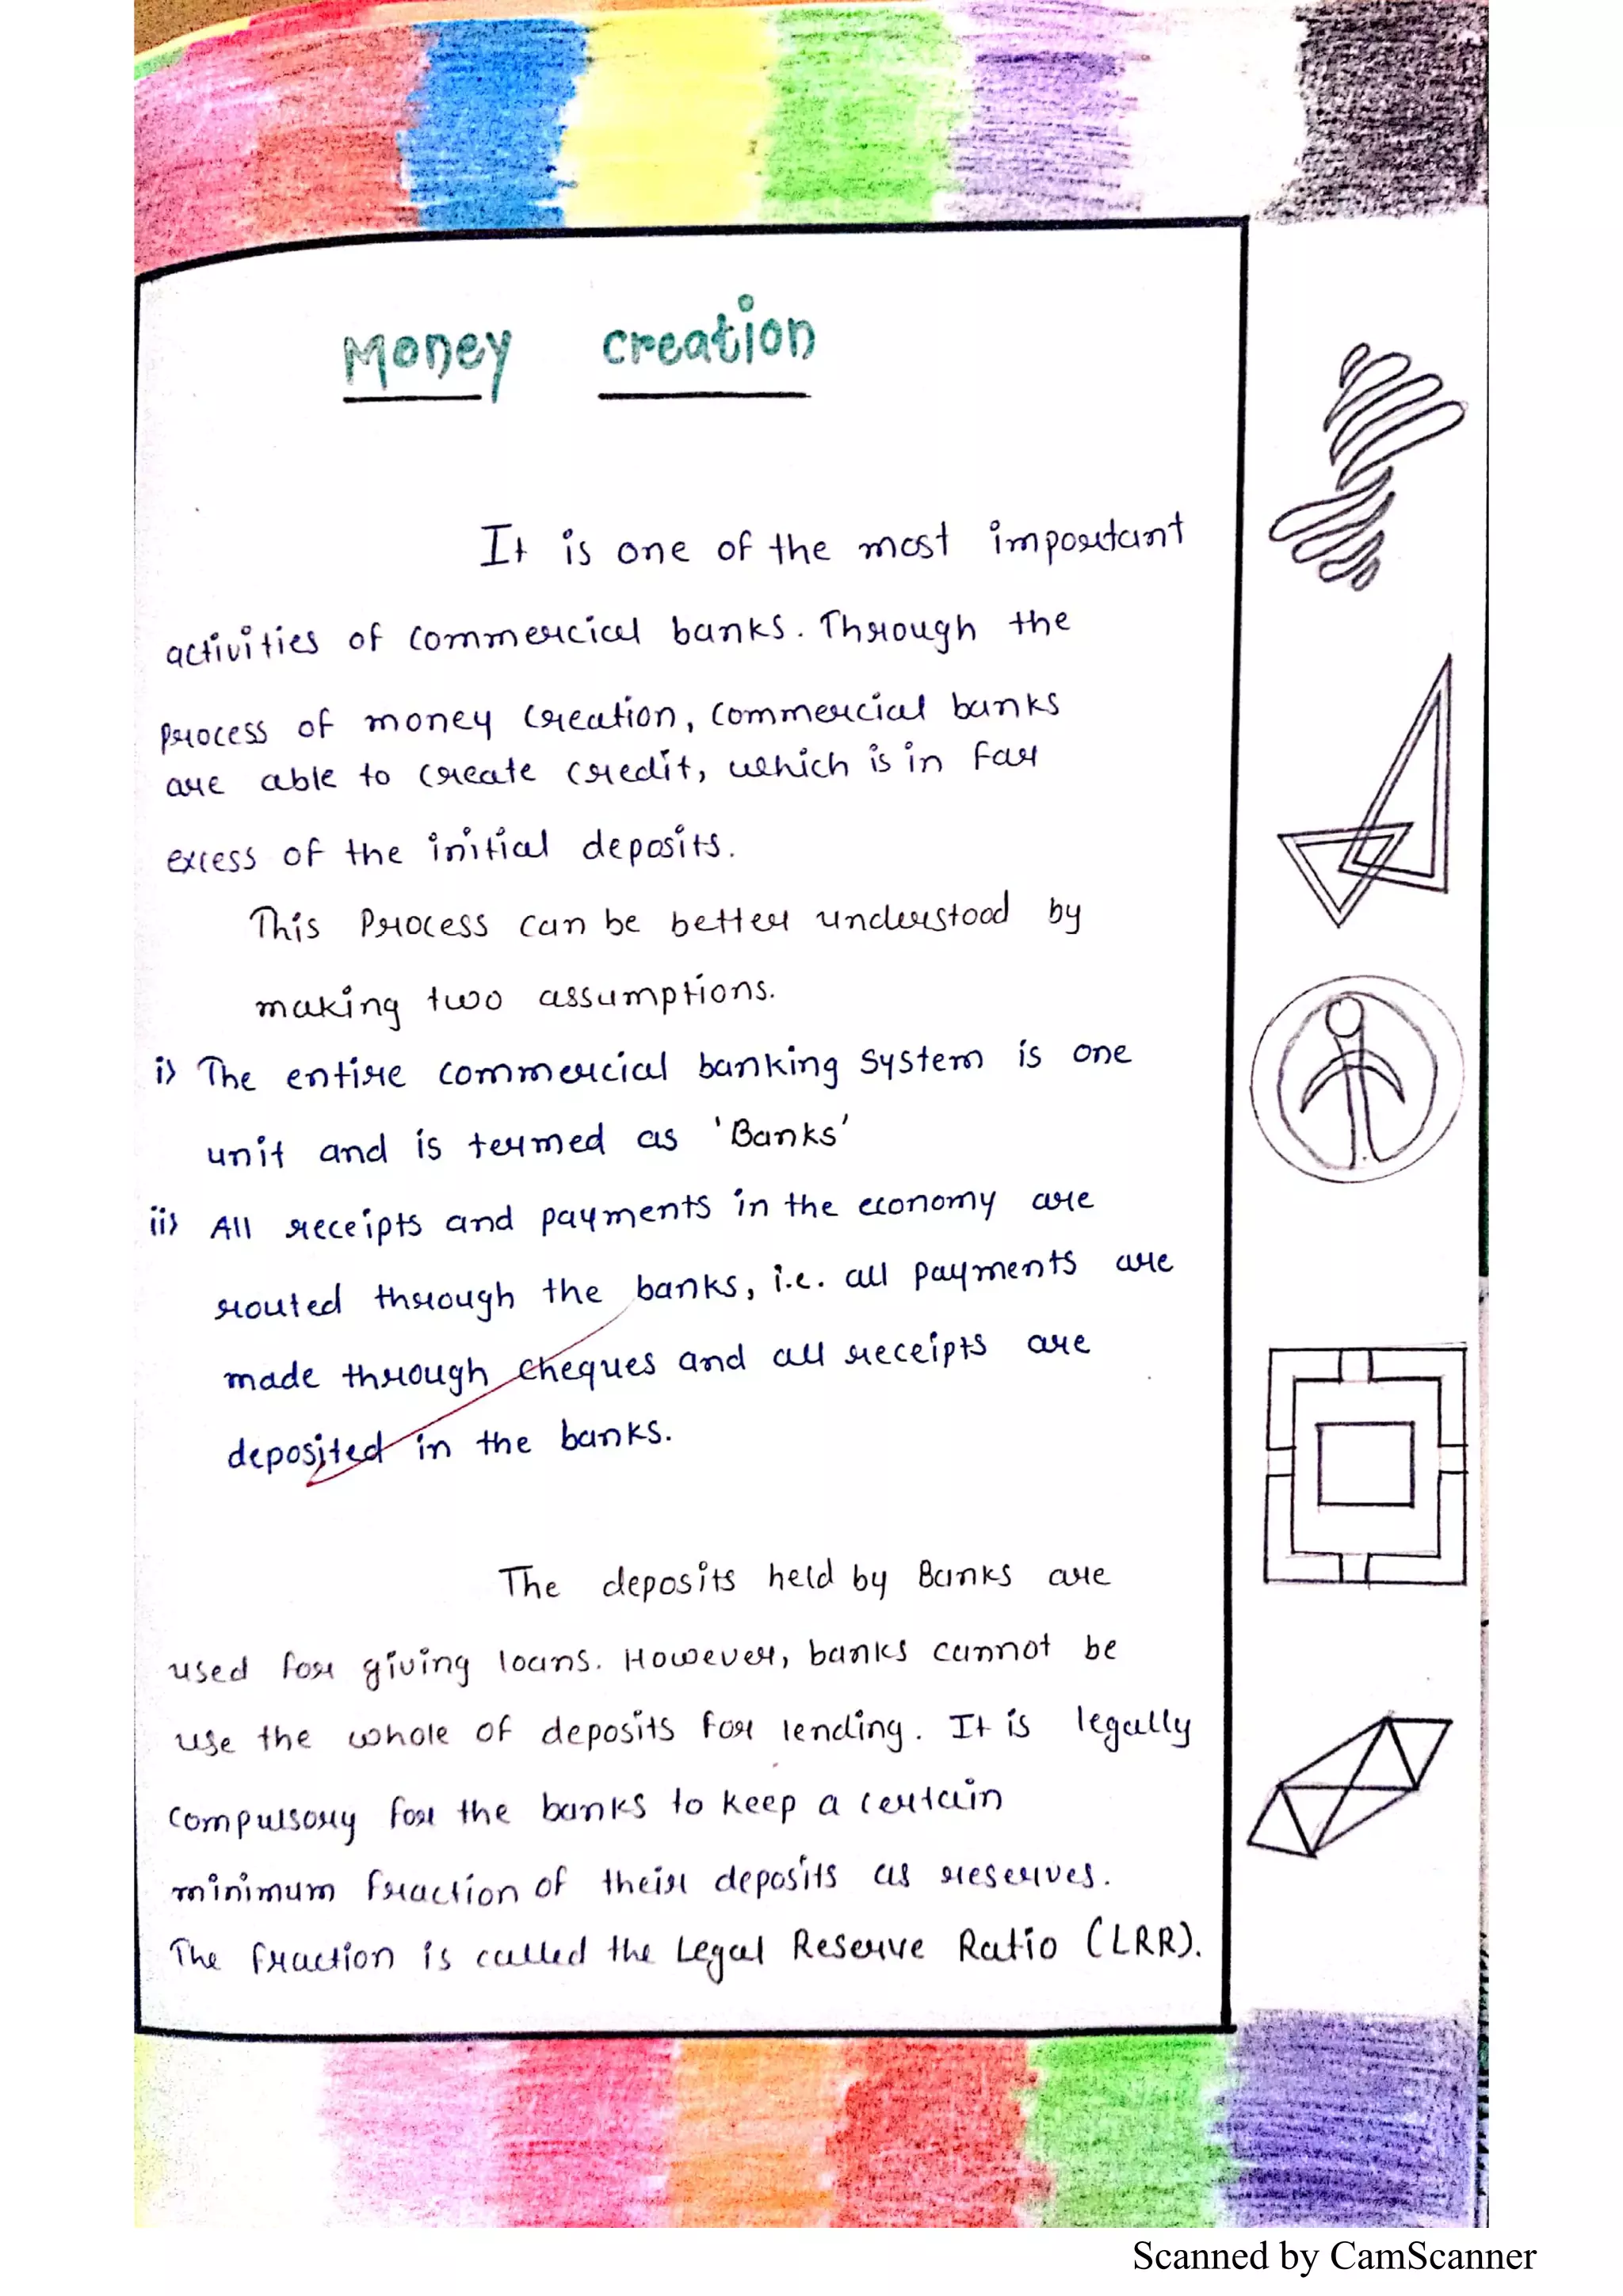 Money creation
It is one of the most important
activities of commercial banks. Through the
process of money creation, commercial banks
are able to create credit, which is in far
excess of the initial deposits.
This Process can be better understood by
making two assumptions.
i) The entire commercial banking system is one
unit and is termed as 'Banks'
ii) All receipts and payments in the economy are
routed through the banks, i.e. all payments are
made through cheques and all receipts are
deposited in the banks.
The deposits held by Banks are
used for giving loans. However, banks cannot be
use the whole of deposits for lending. It is legally
compulsory for the banks to keep a certain
minimum fraction of their deposits as reserves.
The fraction is called the Legal Reserve Ratio (LRR).
Scanned by CamScanner